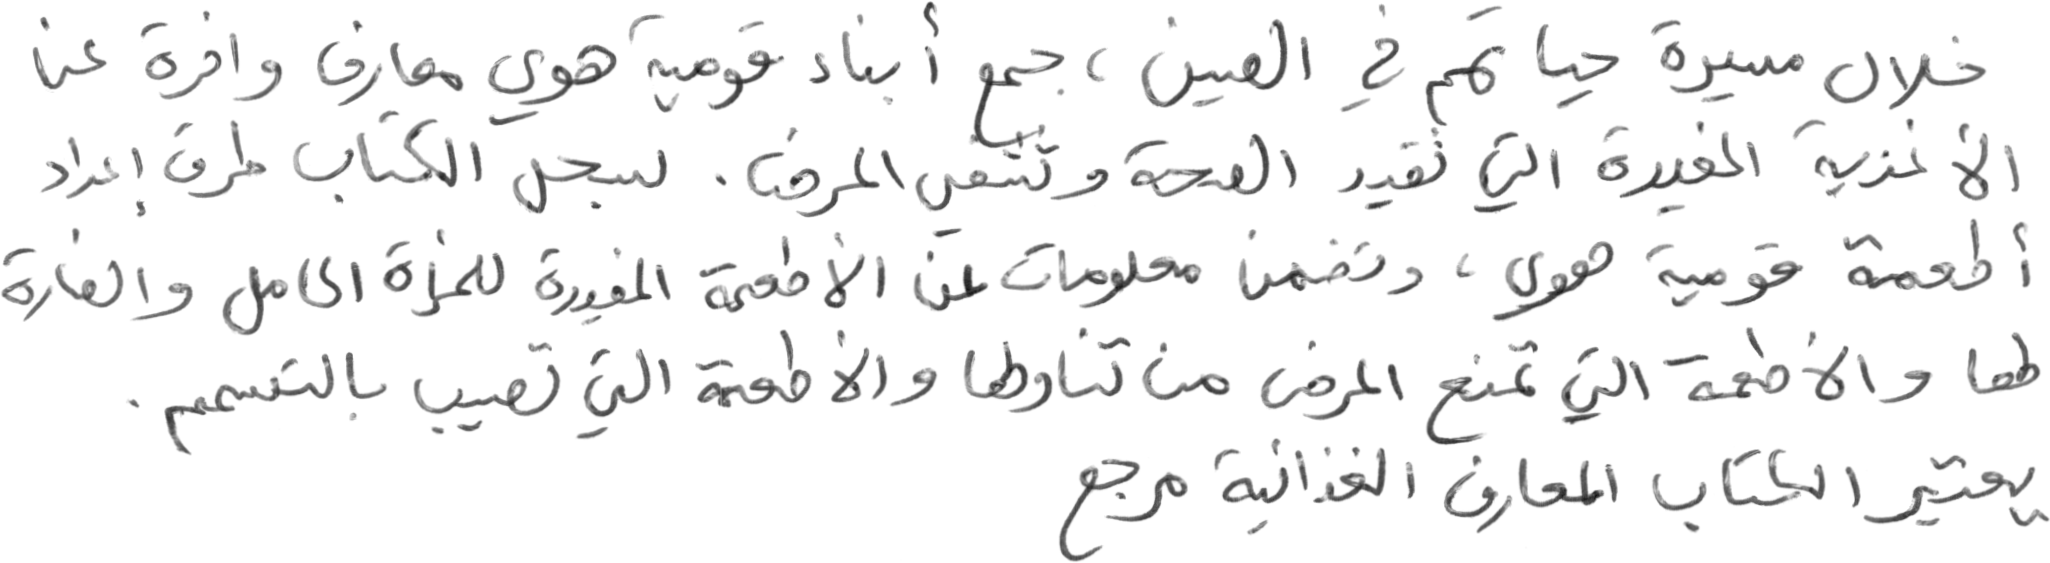 خلال مسيرة حياتهم في الصين، جمع أبناء قومية هوي معارف وافرة عن
الأغذية المفيدة التي تفيد الصحة وتشفي المرض. ليسجل الكتاب طرق إعداد
أطعمة قومية هوي، وتضمن معلومات عن الأطعمة المفيدة للمرأة الحامل والضارة
لها والأطعمة التي تمنع المرض من تناولها والأطعمة التي تصيب بالتسمم.
يعتبر الكتاب المعارف الغذائية مرجع